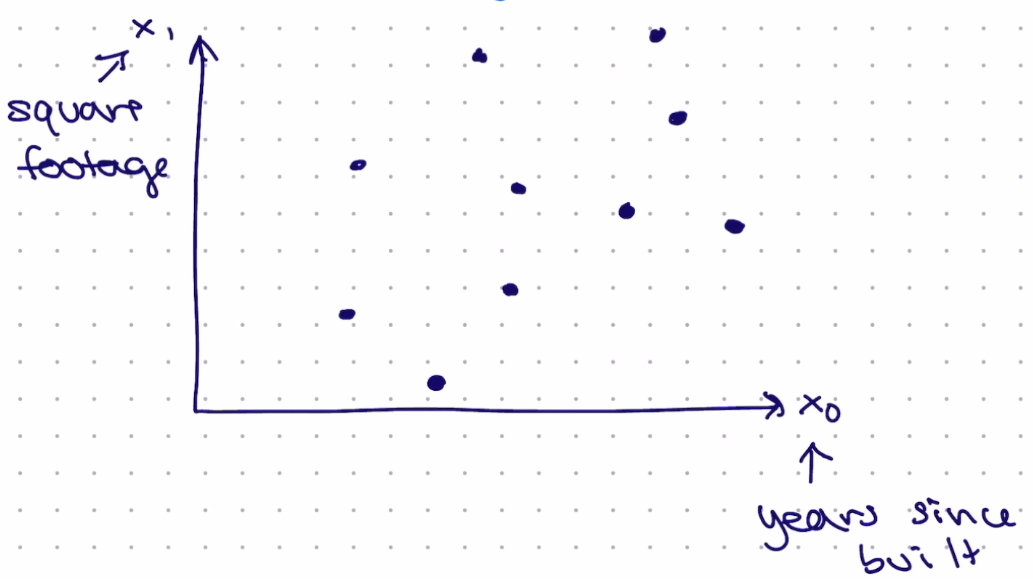 x₁
square
footage
x₀
years since
built